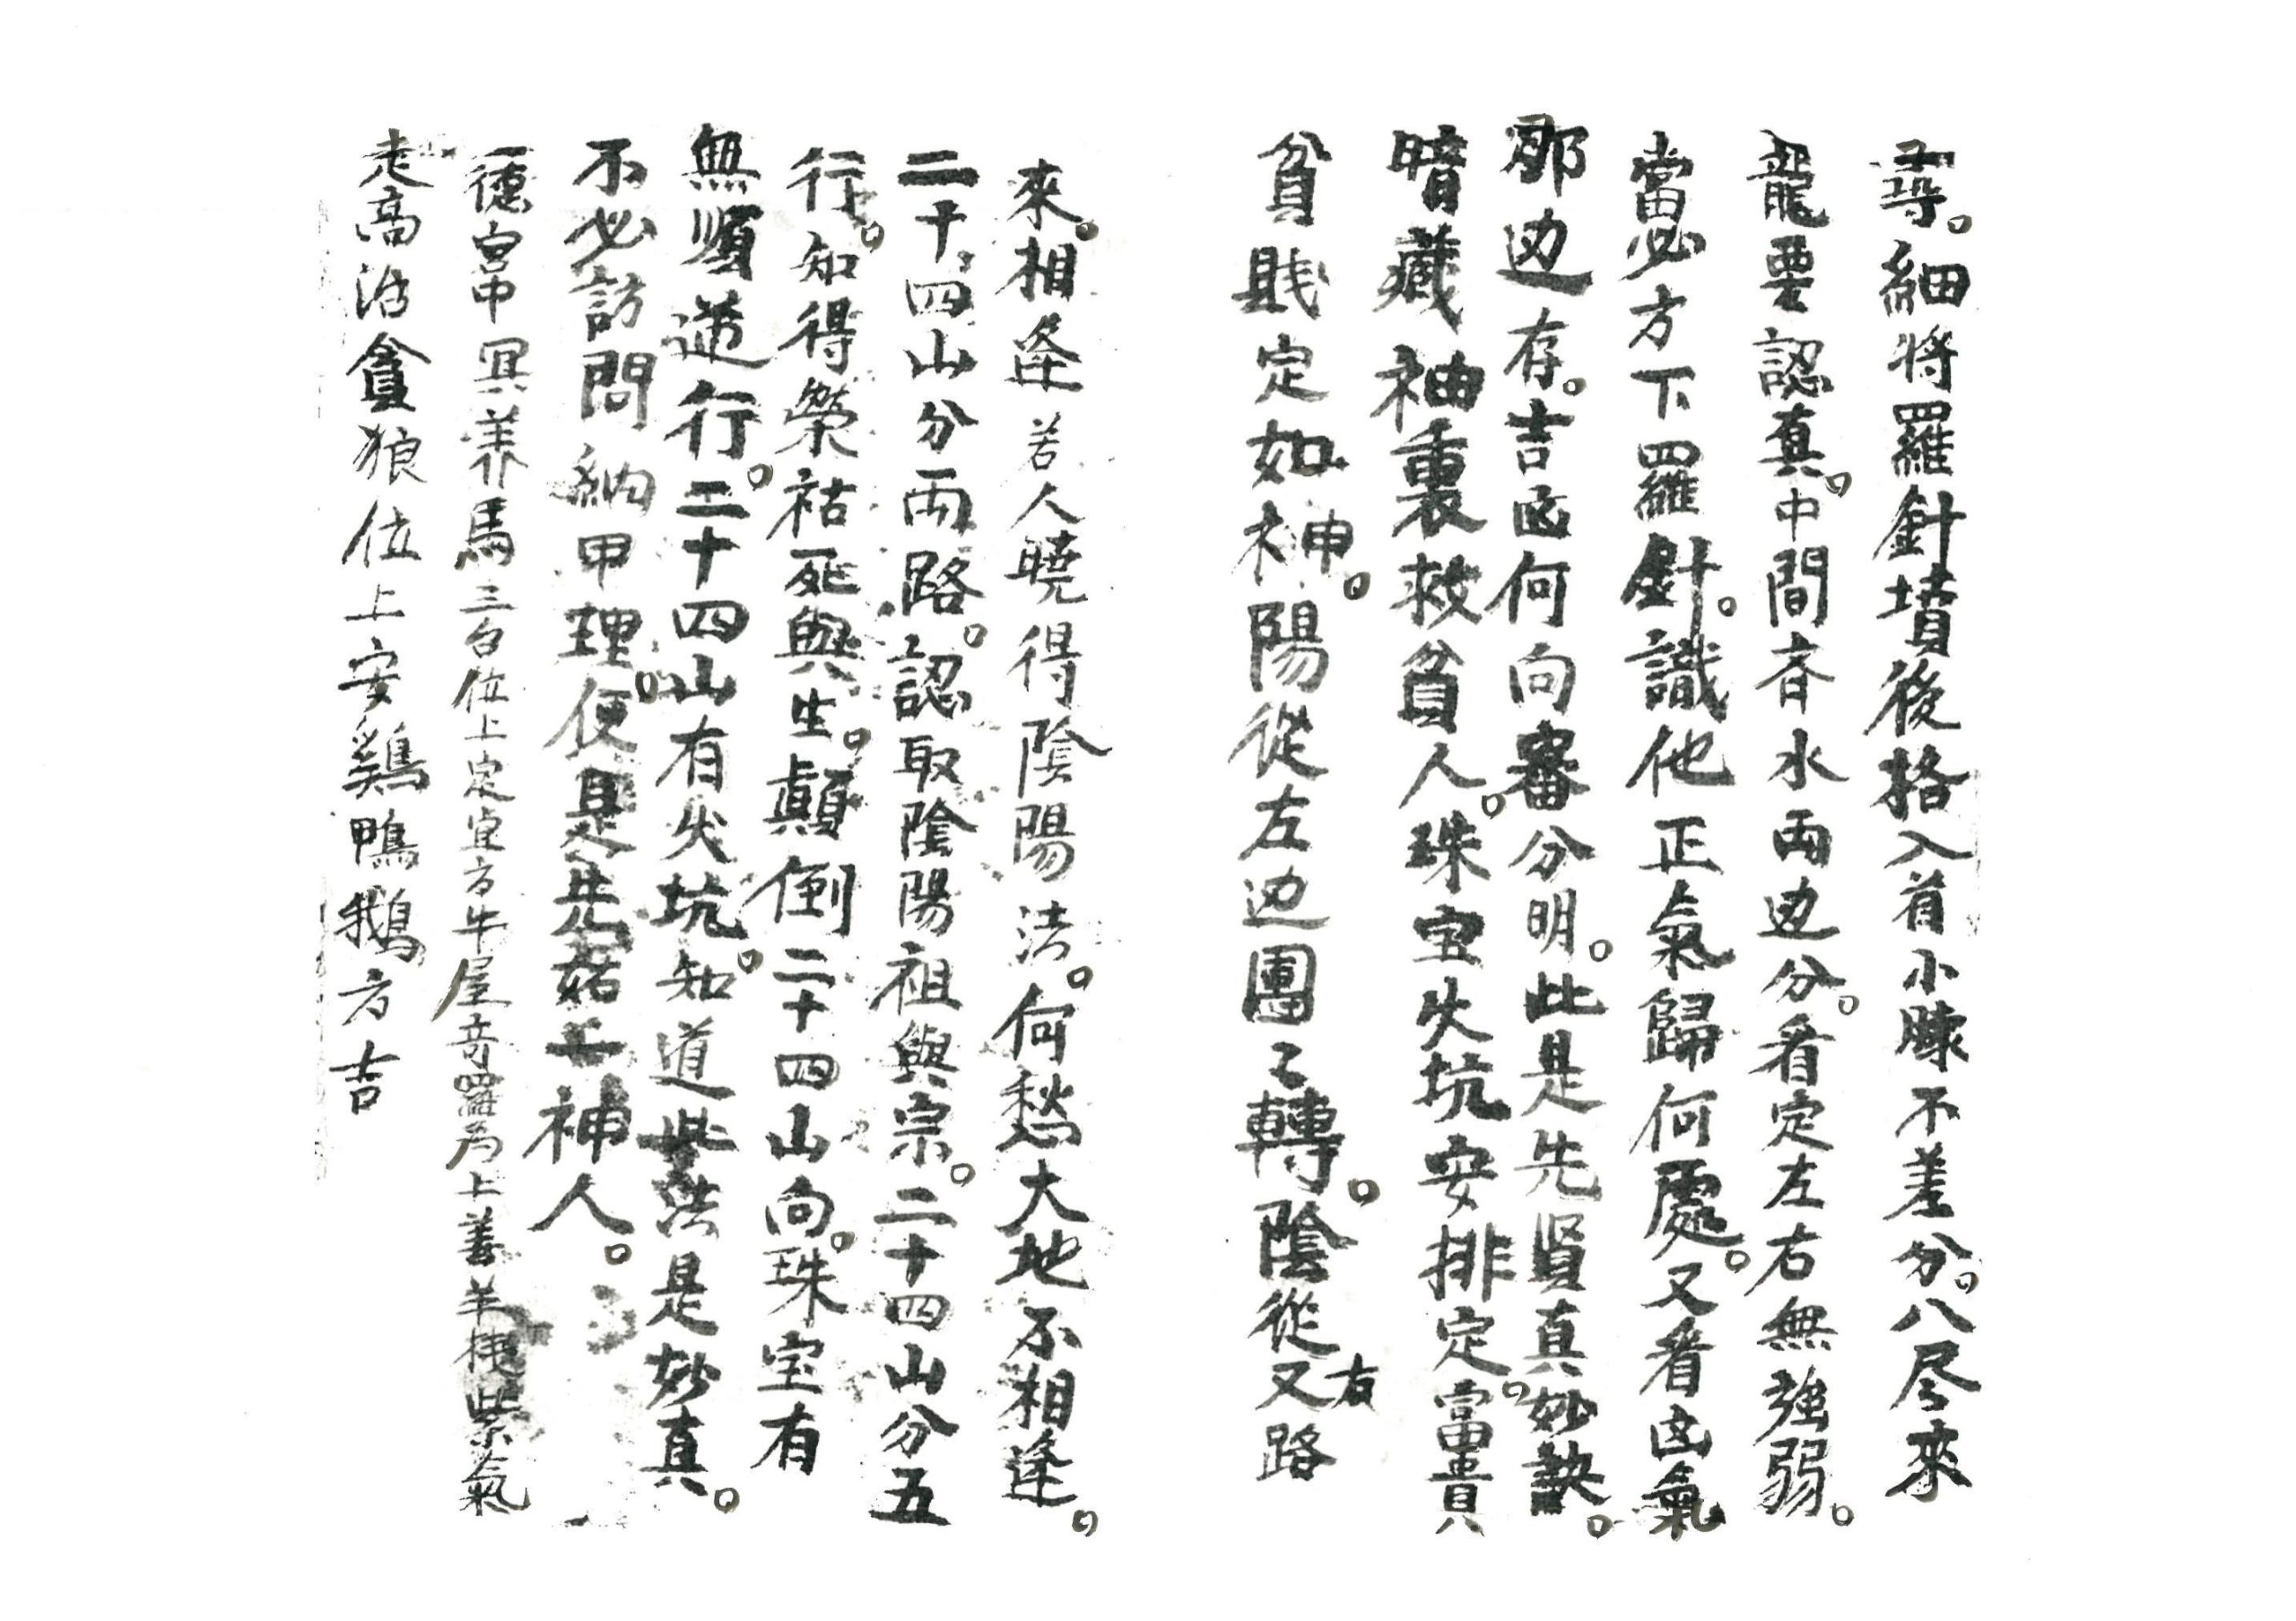 尋。細将羅針墳後格入首小脉不差分。八尽來
龍要認真。中間脊水両边分。看定左右無強弱。
當必方下羅針。識他正氣歸何處。又看凶氣
那边存。吉凶何向審分明。此是先賢真妙訣。
暗藏袖裏救貧人。珠宝火坑安排定。富貴
貧賎定如神。陽從左边團〻轉。陰從又右路
來。相逢若人曉得陰陽法。何愁大地不相逢。
二十四山分両路。認取陰陽祖與宗。二十四山分五
行。知得榮祜死與生。顛倒二十四山向。珠宝有
無順逆行。二十四山有火坑。知道此法是妙真。
不必訪問納甲理。便是先姑神人。
德宮中冥养馬三台位上定宜方牛屋奇羅為上善羊棧紫氣
走高治貪狼位上安鷄鴨鵝方吉